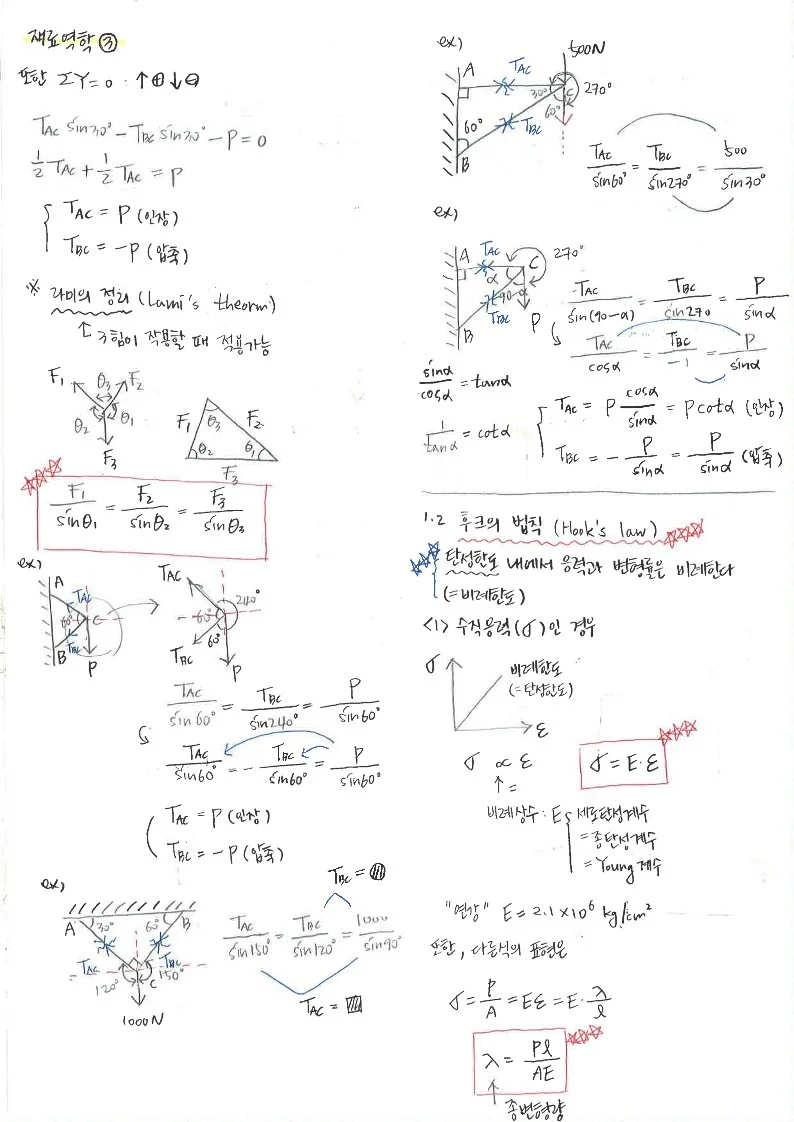 재료역학 ③
또한 ΣY=0 : ↑⊕↓⊖
T_AC sin30° - T_BC sin30° - P = 0
1/2 T_AC + 1/2 T_AC = P
T_AC = P (인장)
T_BC = -P (압축)
※ 라미의 정리 (Lami's theorm)
↑ 3힘이 작용할 때 적용가능
F₁ F₂ θ₃ θ₂ θ₁ F₃
F₁ θ₃ F₂ θ₂ θ₁ F₃
F₁/sinθ₁ = F₂/sinθ₂ = F₃/sinθ₃
ex)
A T_AC 60° C T_BC B P
T_AC 240° 60° 60° T_AC P
T_AC/sin60° = T_BC/sin240° = P/sin60°
T_AC/sin60° = - T_BC/sin60° = P/sin60°
T_AC = P (인장)
T_BC = -P (압축)
ex)
A 30° 60° B
T_AC T_BC
120° C 150°
1000N
T_BC = ▨
T_AC/sin150° = T_BC/sin120° = 1000/sin90°
T_AC = ▨
ex)
500N
A T_AC 30° C 270°
60° 60° T_BC
B
T_AC/sin60° = T_BC/sin270° = 500/sin30°
ex)
A T_AC C 270°
α 90-α
T_BC P
B
T_AC/sin(90-α) = T_BC/sin270 = P/sinα
T_AC/cosα = T_BC/-1 = P/sinα
sinα/cosα = tanα
1/tanα = cotα
T_AC = P cosα/sinα = P cotα (인장)
T_BC = - P/sinα = P/sinα (압축)
1.2 후크의 법칙 (Hook's law)
탄성한도 내에서 응력과 변형률은 비례한다
(=비례한도)
<1> 수직응력(σ)인 경우
σ 비례한도
(=탄성한도)
ε
σ ∝ ε
↑ =
σ = E·ε
비례상수 : E 세로탄성계수
= 종탄성계수
= Young계수
"연강" E = 2.1×10⁶ kg/cm²
또한, 다른식의 표현은
σ = P/A = Eε = E·λ/l
λ = Pl/AE
↑
종변형량